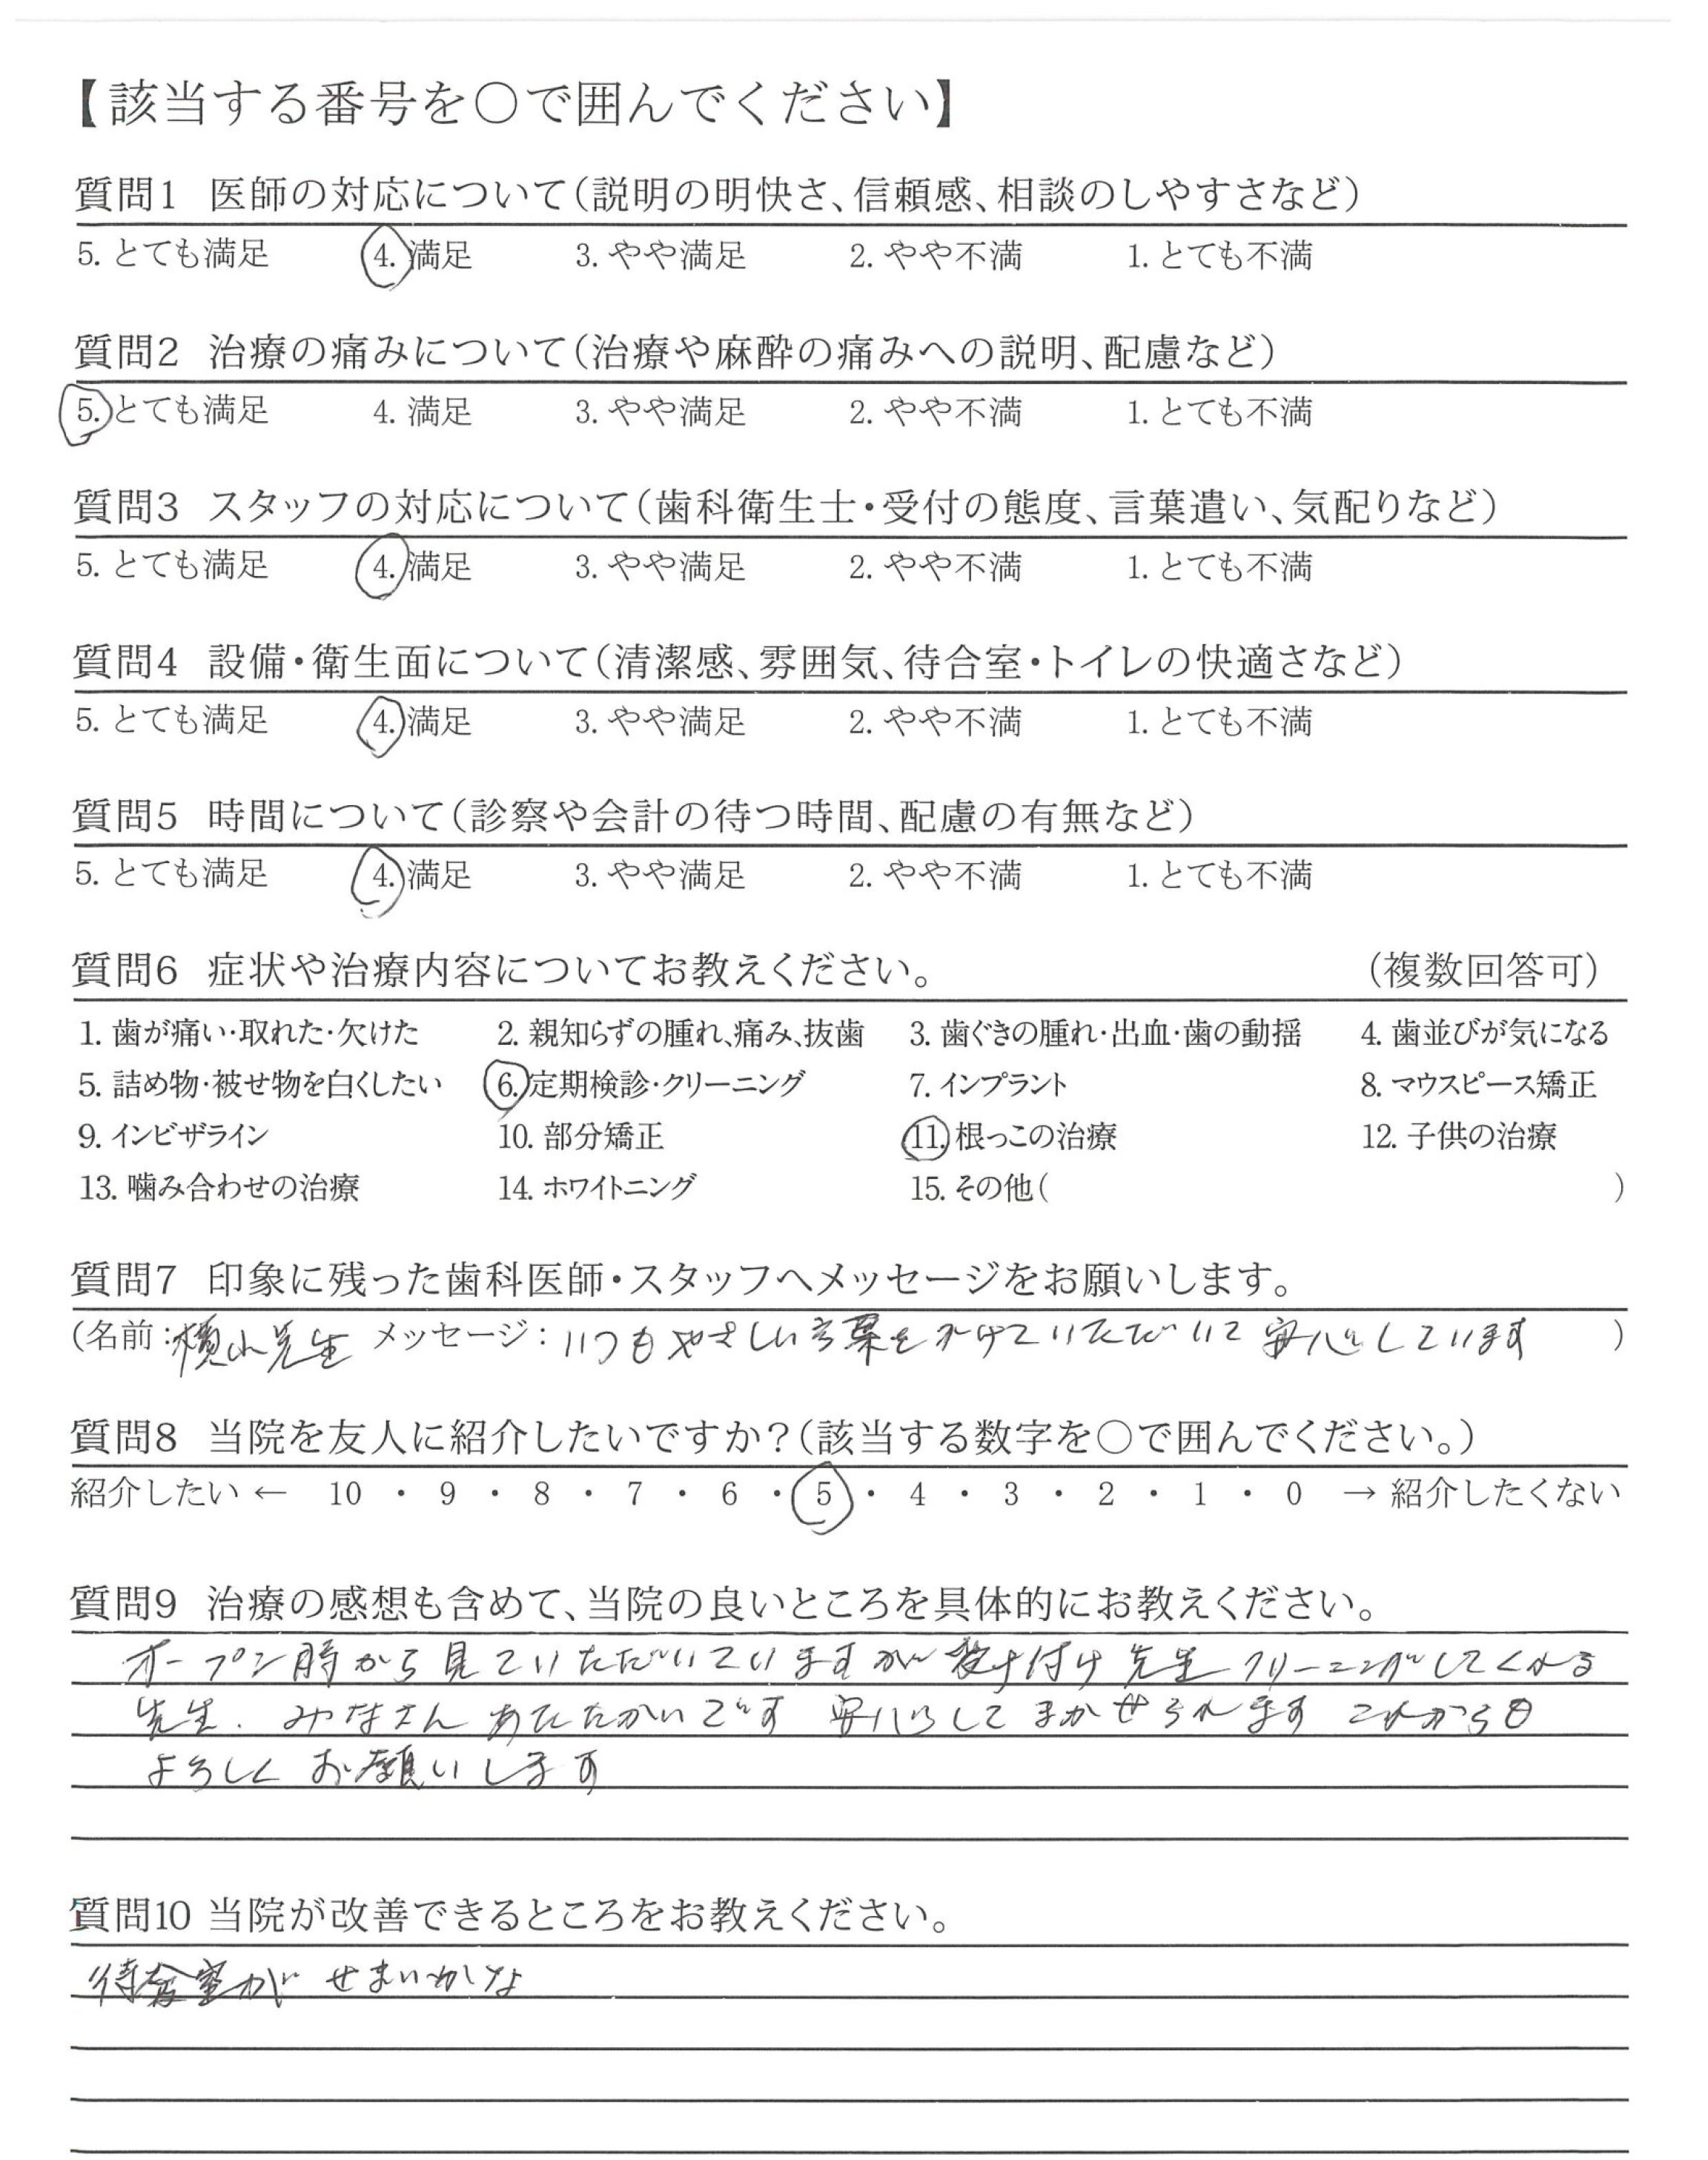 【該当する番号を〇で囲んでください】
質問1 医師の対応について(説明の明快さ、信頼感、相談のしやすさなど)
5. とても満足 4. 満足 3. やや満足 2. やや不満 1. とても不満
質問2 治療の痛みについて(治療や麻酔の痛みへの説明、配慮など)
5. とても満足 4. 満足 3. やや満足 2. やや不満 1. とても不満
質問3 スタッフの対応について(歯科衛生士・受付の態度、言葉遣い、気配りなど)
5. とても満足 4. 満足 3. やや満足 2. やや不満 1. とても不満
質問4 設備・衛生面について(清潔感、雰囲気、待合室・トイレの快適さなど)
5. とても満足 4. 満足 3. やや満足 2. やや不満 1. とても不満
質問5 時間について(診察や会計の待つ時間、配慮の有無など)
5. とても満足 4. 満足 3. やや満足 2. やや不満 1. とても不満
質問6 症状や治療内容についてお教えください。 (複数回答可)
1. 歯が痛い・取れた・欠けた 2. 親知らずの腫れ、痛み、抜歯 3. 歯ぐきの腫れ・出血・歯の動揺 4. 歯並びが気になる
5. 詰め物・被せ物を白くしたい 6. 定期検診・クリーニング 7. インプラント 8. マウスピース矯正
9. インビザライン 10. 部分矯正 11. 根っこの治療 12. 子供の治療
13. 噛み合わせの治療 14. ホワイトニング 15. その他( )
質問7 印象に残った歯科医師・スタッフへメッセージをお願いします。
(名前:横山先生 メッセージ:いつもやさしい言葉をかけていただいて安心しています )
質問8 当院を友人に紹介したいですか?(該当する数字を〇で囲んでください。)
紹介したい ← 10 ・ 9 ・ 8 ・ 7 ・ 6 ・ 5 ・ 4 ・ 3 ・ 2 ・ 1 ・ 0 → 紹介したくない
質問9 治療の感想も含めて、当院の良いところを具体的にお教えください。
オープン時から見ていただいていますが 受け付け 先生 クリーニングしてくれる
先生. みなさん あたたかいです 安心して まかせられます これからも
よろしく お願いします
質問10 当院が改善できるところをお教えください。
待合室が せまいかな